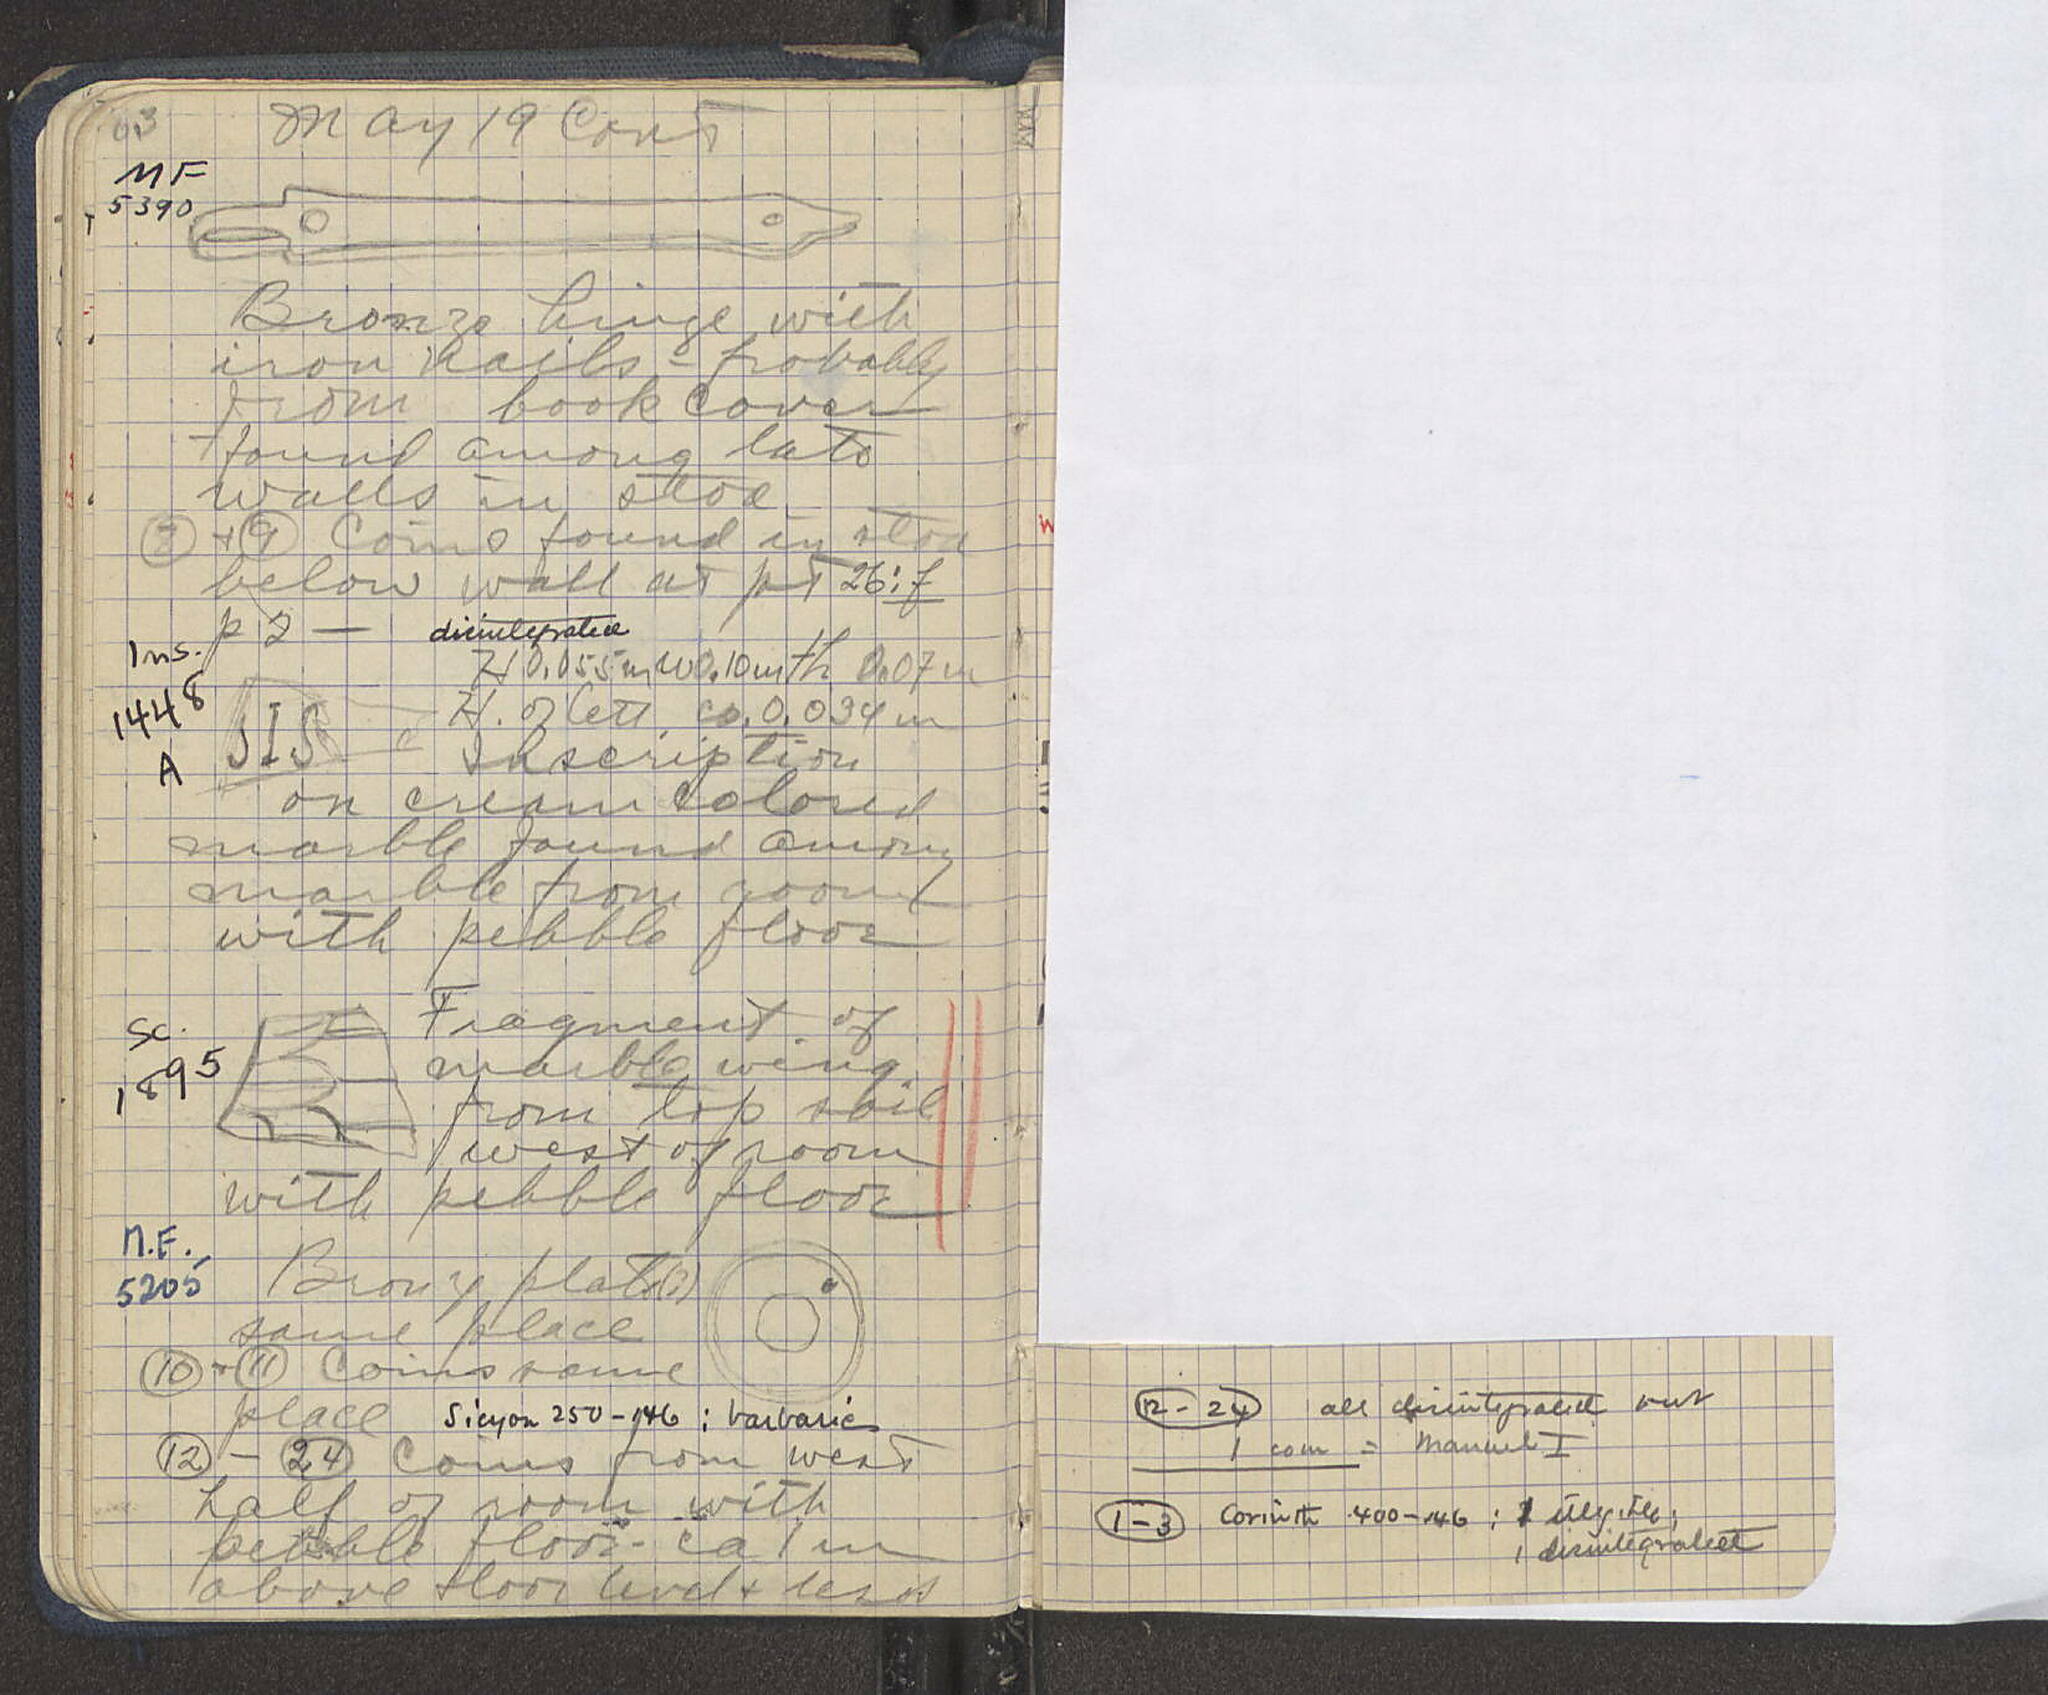 63
May 19 Cont
MF
5390
Bronze hinge with
iron nails - probably
from book cover
found among late
walls in stoa
⑧ + ⑨ Coins found in stoa
below wall at pt 26:f
p 2 — disintegrated
Ins.
1448
A
H 0.055 m W 0.10 m th 0.07 m
H. of lett ca. 0.034 m
JIS
Inscription
on cream colored
marble found among
marble from room
with pebble floor
Sc.
1895
Fragment of
marble wing
from top soil
west of room
with pebble floor
M.F.
5205
Bronz plate(?)
same place
⑩ + ⑪ Coins same
place Sicyon 250-146 ; barbaric
⑫ - ㉔ Coins from west
half of room with
pebble floor - ca 1 m
above floor level + less
12 - 24 all disintegrated but
1 coin = Manuel I
1-3 Corinth 400-146 ; 1 illegible ;
1 disintegrated